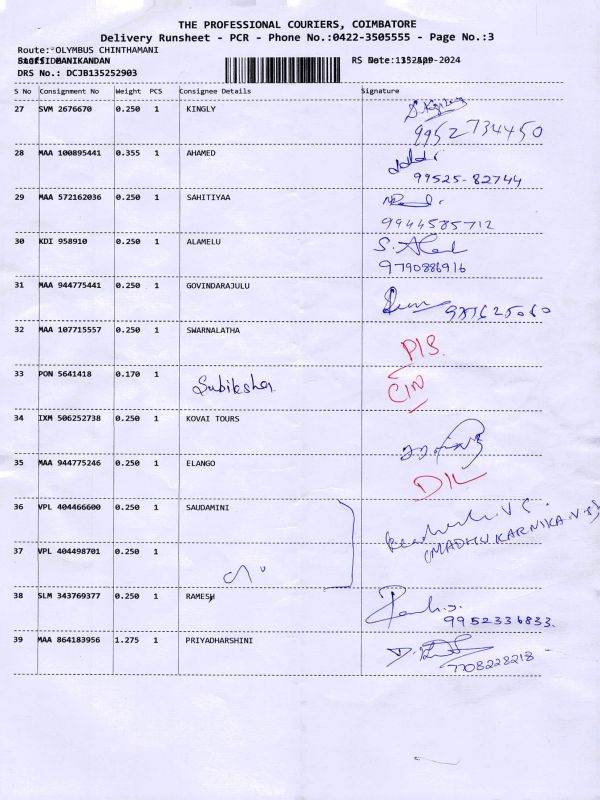 THE PROFESSIONAL COURIERS, COIMBATORE
Delivery Runsheet - PCR - Phone No.:0422-3505555 - Page No.:3
Route: OLYMBUS CHINTHAMANI
MANIKANDAN -2024
DRS No.: DCJB135252903
S No Consignment No Weight PCS Consignee Details Signature
27 SVM 2676670 0.250 1 KINGLY
9952734450
28 MAA 100895441 0.355 1 AHAMED
99525-82744
29 MAA 572162036 0.250 1 SAHITIYAA
9944585712
30 KDI 958910 0.250 1 ALAMELU
9790886916
31 MAA 944775441 0.250 1 GOVINDARAJULU
32 MAA 107715557 0.250 1 SWARNALATHA P/S.
33 PON 5641418 0.170 1 Subiksha
34 IXM 506252738 0.250 1 KOVAI TOURS
35 MAA 944775246 0.250 1 ELANGO D/L
36 VPL 404466600 0.250 1 SAUDAMINI
(MADHU KARNIKA.V.S)
37 VPL 404498701 0.250 1
38 SLM 343769377 0.250 1 RAMESH
9952336833.
39 MAA 864183956 1.275 1 PRIYADHARSHINI
7708228218